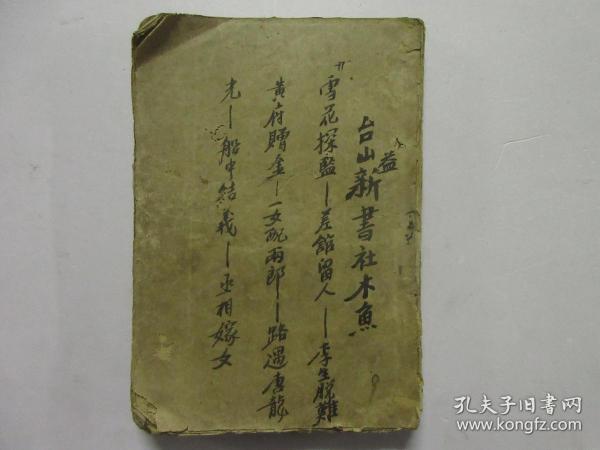 台山新書社木魚
益
雪花探監—差館留人—李生脫難
黃府贈金—一女配兩郎—路遇唐龍
光—船中結義—丞相嫁女
孔夫子旧书网
www.kongfz.com